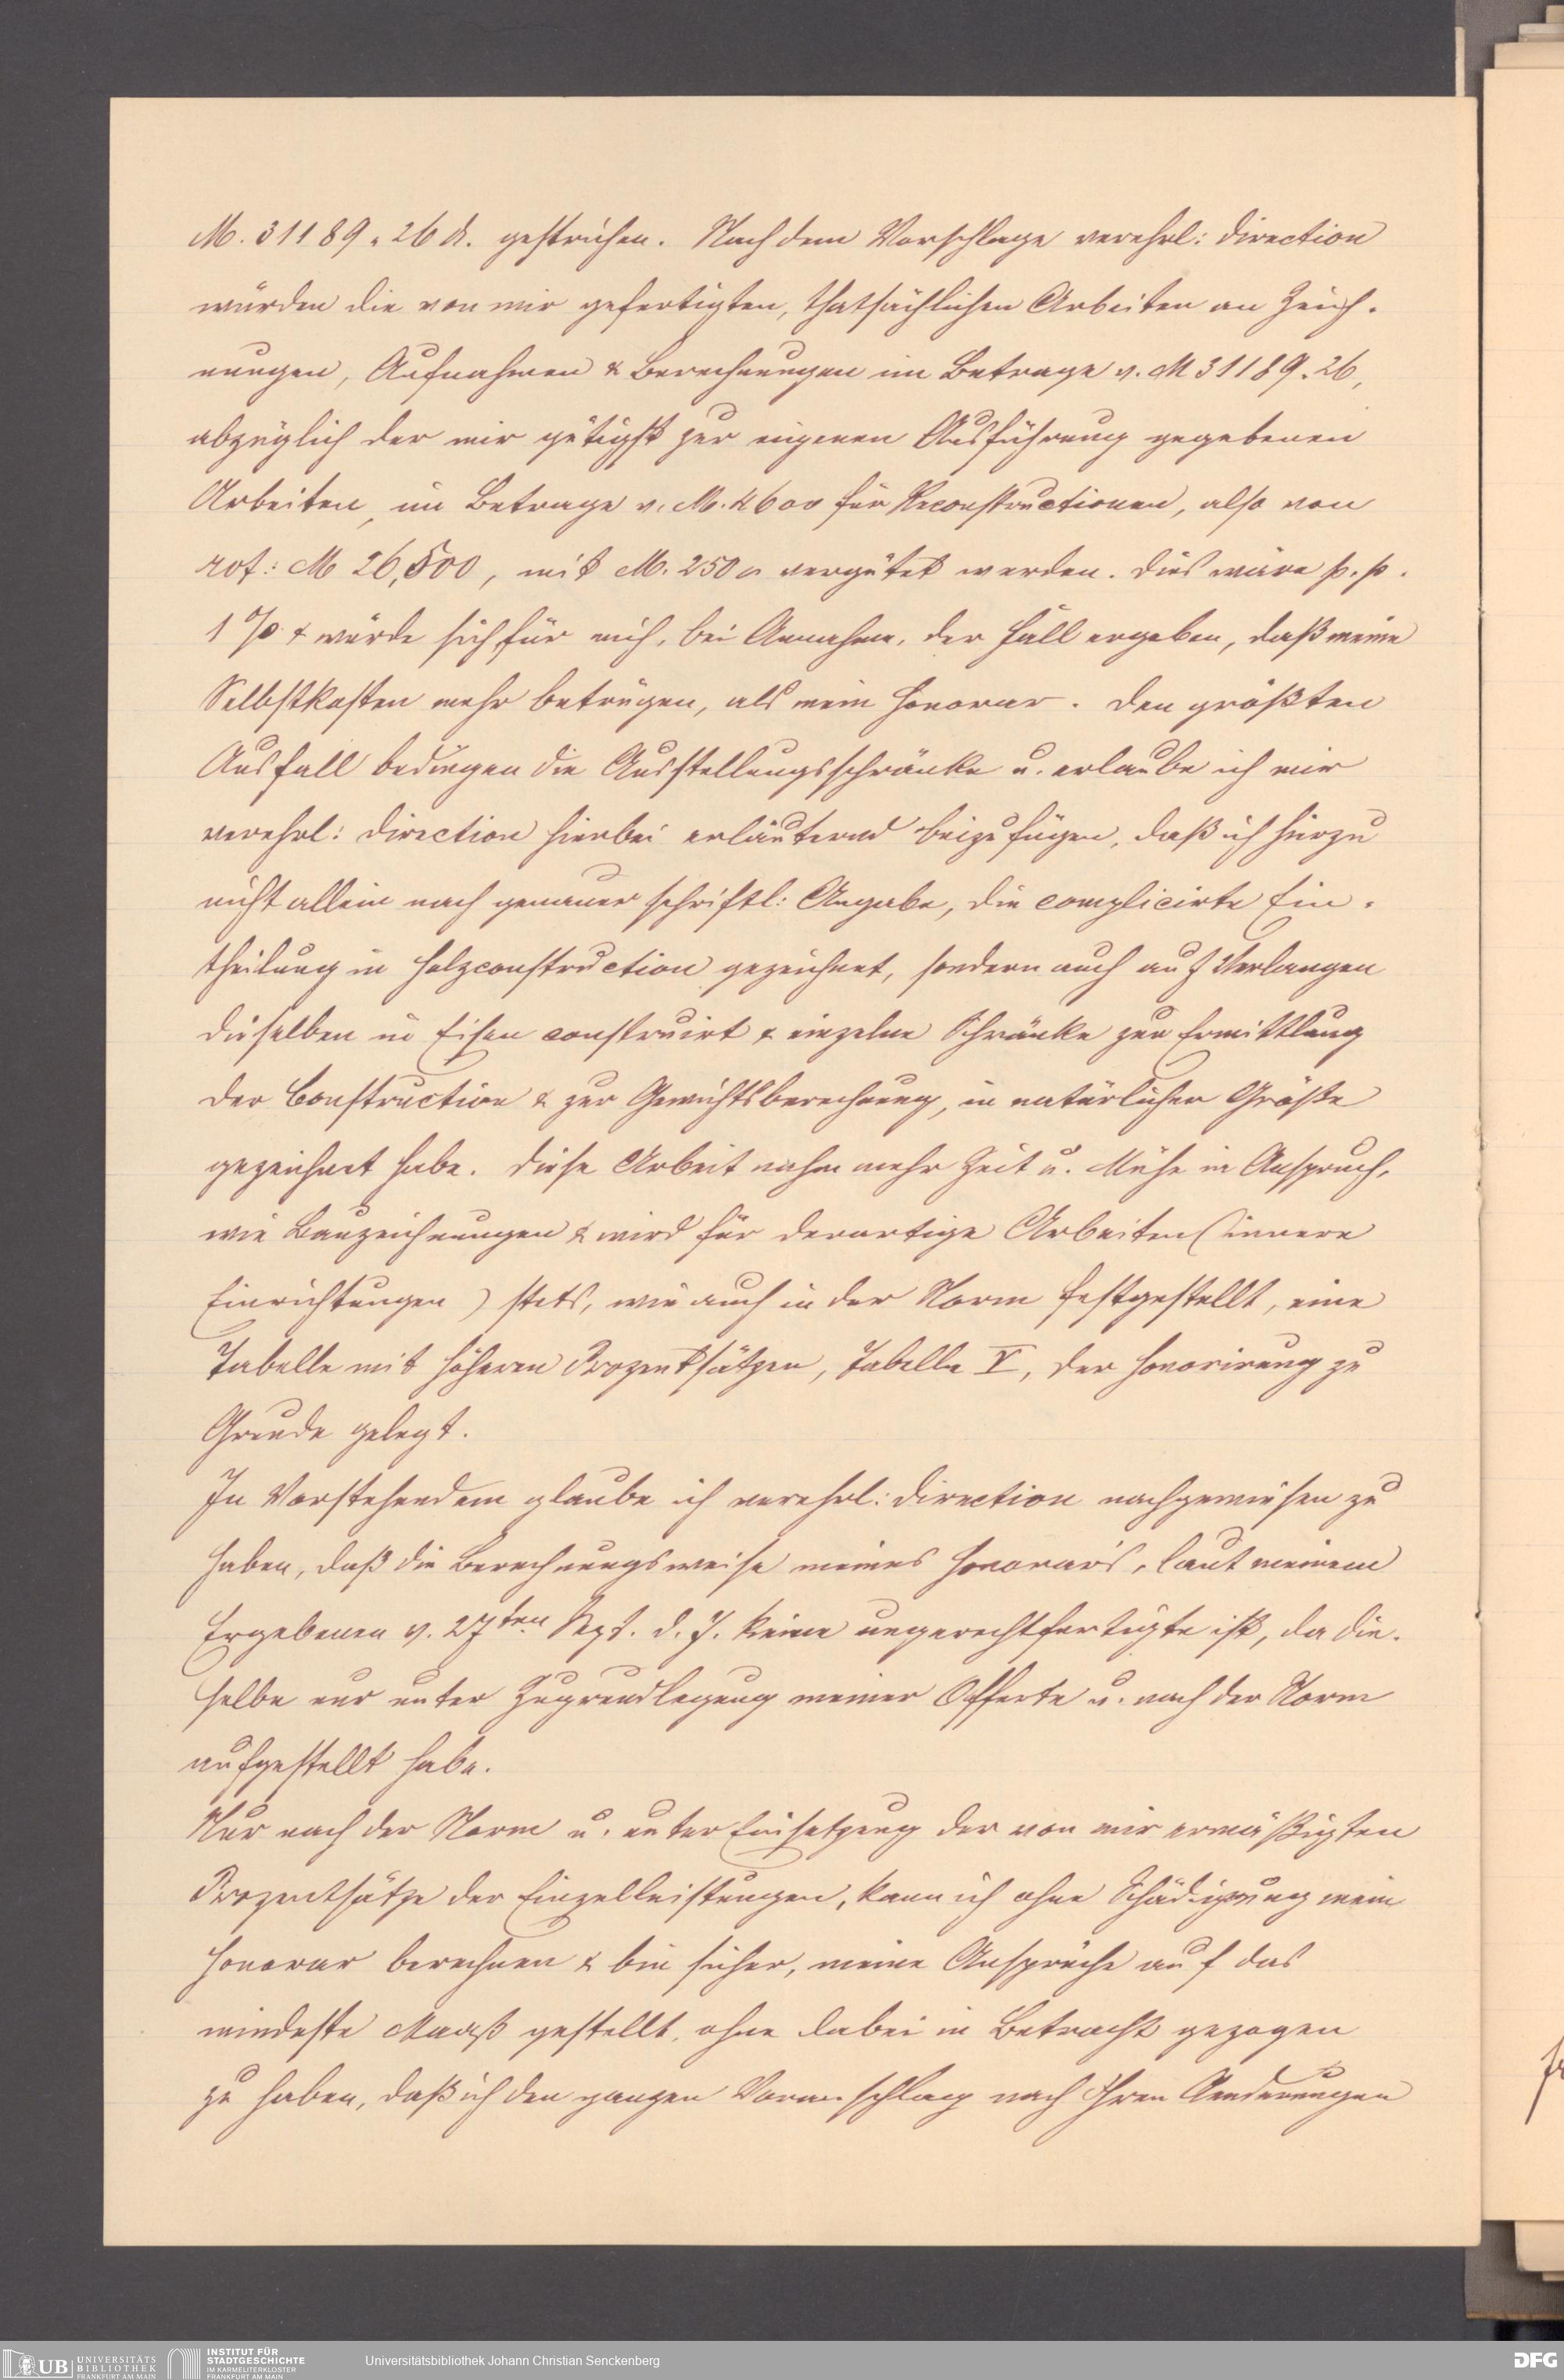 M. 31189.26 ₰. gestrichen. Nach dem Vorschlage verehrl: Direction
würden die von mir gefertigten, thatsächlichen Arbeiten an Zeich-
nungen, Aufnahmen & Berechnungen im Betrage v. M 31189.26,
abzüglich der mir gütigst zur eigenen Ausführung gegebenen
Arbeiten, im Betrage v. M. 4600 für Reconstructionen, also von
rot: M 26,500, mit M. 250.– vergütet werden. Dies wäre p. p.
1 % & würde sich für mich, bei Annahme, der Fall ergeben, daß meine
Selbstkosten mehr betrügen, als mein Honorar. Den größten
Ausfall bedingen die Ausstellungsschränke u. erlaube ich mir
verehrl: Direction hierbei erläuternd beizufügen, daß ich hierzu
nicht allein nach genauer schriftl: Angabe, die complicirte Ein-
theilung in Holzconstruction gezeichnet, sondern auch auf Verlangen
dieselben in Eisen construirt & einzelne Schränke zur Ermittlung
der Construction & zur Gewichtsberechnung, in natürlicher Größe
gezeichnet habe. Diese Arbeit nahm mehr Zeit u. Mühe in Anspruch,
wie Bauzeichnungen & wird für derartige Arbeiten (innere
Einrichtungen) stets, wie auch in der Norm festgestellt, eine
Tabelle mit höheren Prozentsätzen, Tabelle V, der Honorirung zu
Grunde gelegt.
In Vorstehendem glaube ich verehrl: Direction nachgewiesen zu
haben, daß die Berechnungsweise meines Honorar's, laut meinem
Ergebenen v. 27ten Sept. d. J. keine ungerechtfertigte ist, da die-
selbe nur unter Zugrundlegung meiner Offerte u. nach der Norm
aufgestellt habe.
Nur nach der Norm u. unter Einsetzung der von mir ermäßigten
Prozentsätze der Einzelleistungen, kann ich ohne Schädigung mein
Honorar berechnen & bin sicher, meine Ansprüche auf das
mindeste Maaß gestellt, ohne dabei in Betracht gezogen
zu haben, daß ich den ganzen Voranschlag nach Ihren Aenderungen
UB UNIVERSITÄTS
BIBLIOTHEK
FRANKFURT AM MAIN
INSTITUT FÜR
STADTGESCHICHTE
IM KARMELITERKLOSTER
FRANKFURT AM MAIN
Universitätsbibliothek Johann Christian Senckenberg
DFG